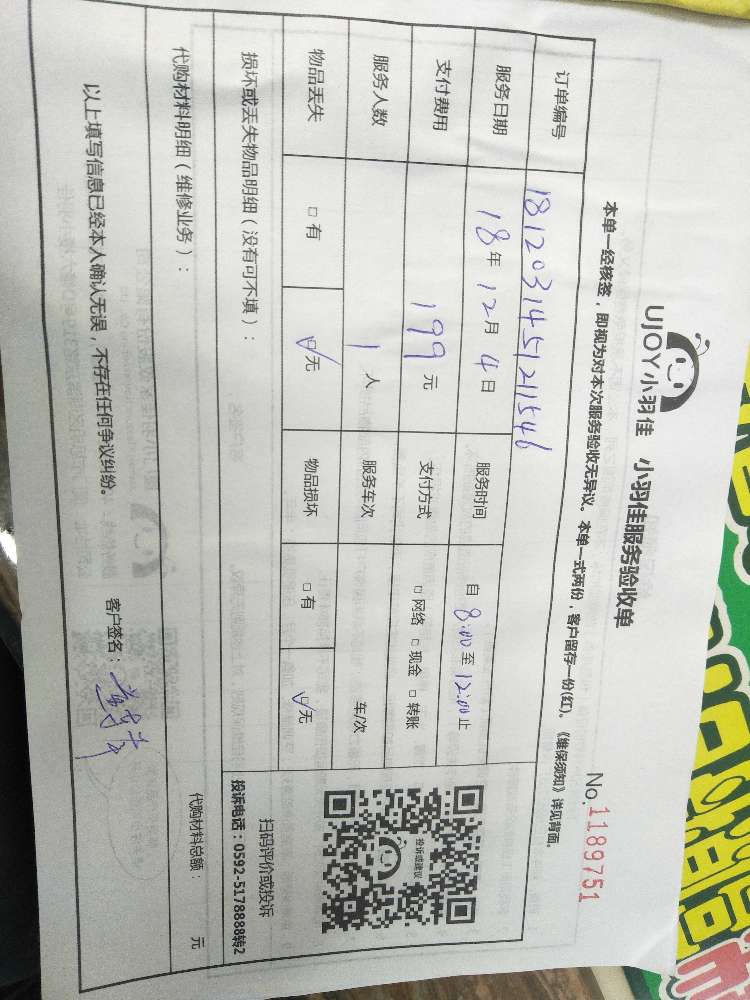 UJOY小羽佳 小羽佳服务验收单
No. 1189751
本单一经核签，即视为对本次服务验收无异议。本单一式两份，客户留存一份(红)。《维保须知》详见背面。
订单编号 1812031451211546
服务日期 18年12月4日 服务时间 自8:00至12:00止
支付费用 199元 支付方式 □网络 □现金 □转账
服务人数 1人 服务车次 车/次
物品丢失 □有 ☑无 物品损坏 □有 ☑无
投诉或建议
扫码评价或投诉
投诉电话：0592-5178888转2
损坏或丢失物品明细（没有可不填）：
代购材料明细（维修业务）： 代购材料总额： 元
以上填写信息已经本人确认无误，不存在任何争议纠纷。 客户签名：